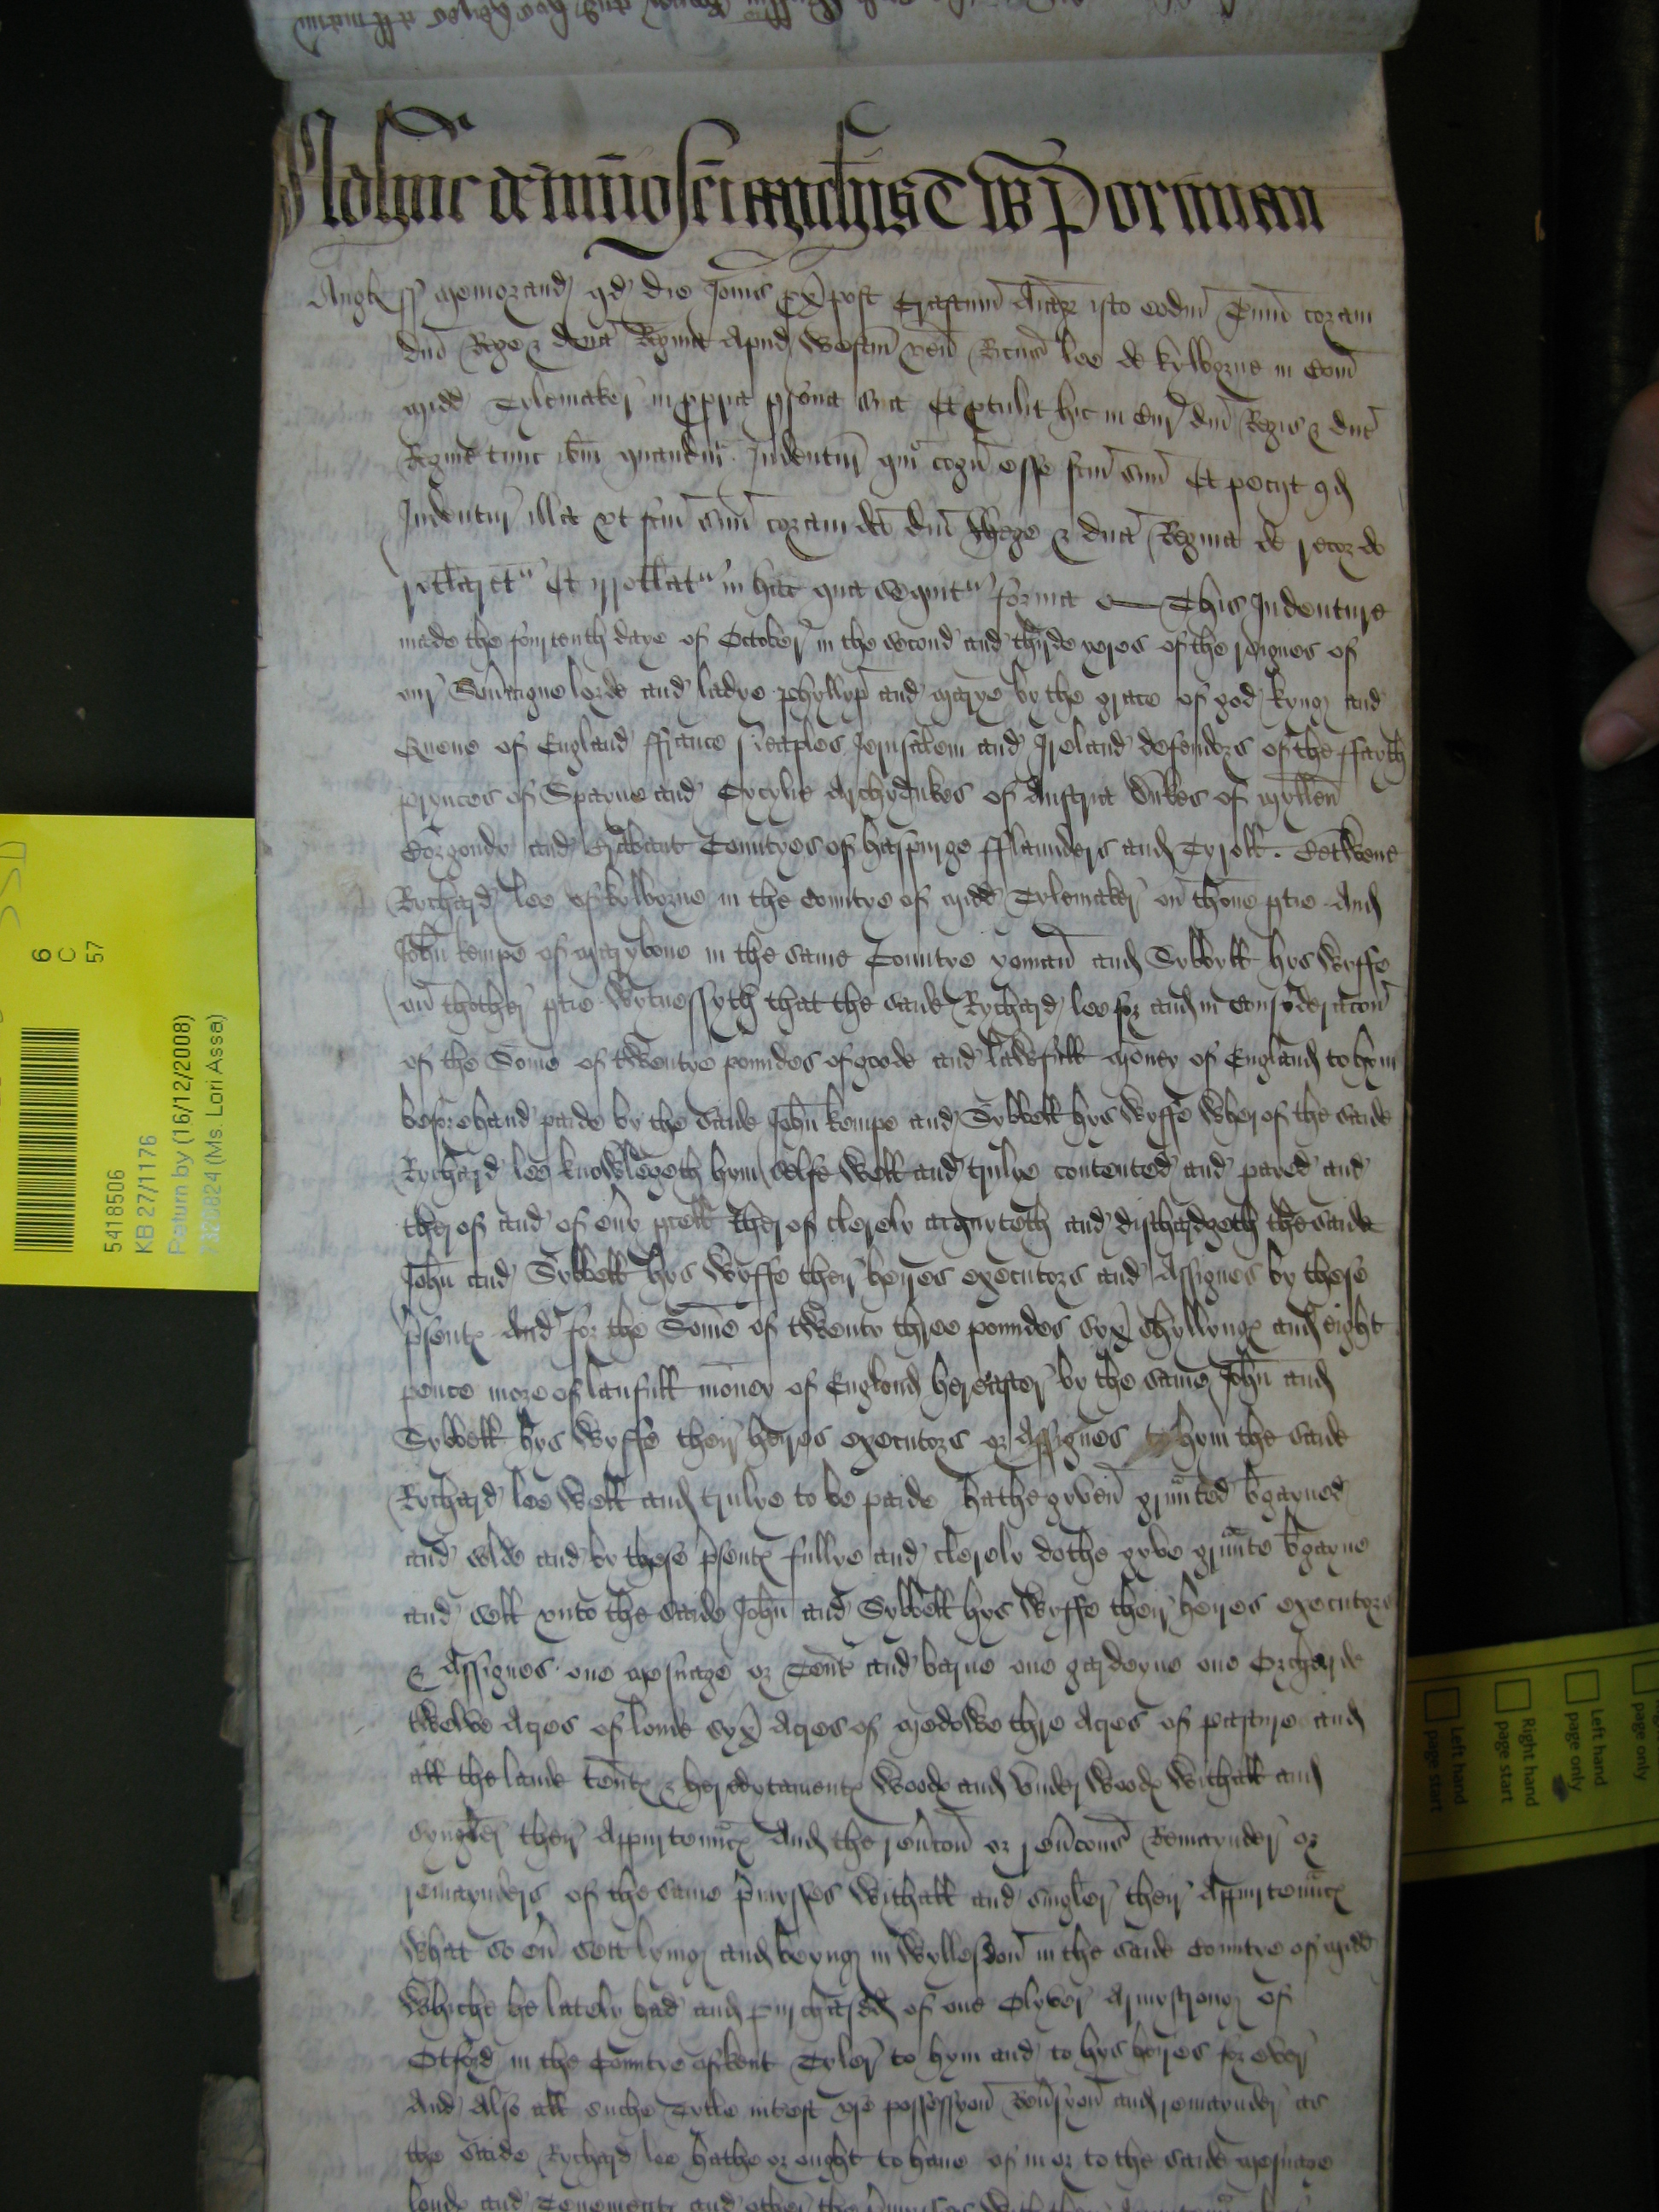 Adhuc de termino sci Michis T W Portman
Angl ss Memorand qd die Jovis px post Crastinu Animar isto eodm Termio coram
dno Rege & dna Regina apud Westm ven Ricus lee de kylborne in Com
Midd Tylemaker in ppria psona sua Et ptulit hic in Cur dci dni Regis & dne
Regine tunc ibm quandm Indentur qm cogn esse fcm suu Et petijt qd
Indentur illa vt fcm suu coram dco dno Rege & dna Regina de recordo
irrotlaret Et irrotlatr in hac que sequitr forma This Indenture
made the fourtenth daye of October in the second and thirde yeres of the reignes of
our Sovaigne lorde and ladye phyllyp and marye by the grace of god kyng and
Quene of England ffrance Neaples Jerusalem and Jreland defendors of the ffayth
prynces of Spayne and Cycylie Archydukes of Austria Dukes of myllen
Borgondy and Brabant Countyes of haspurge fflaunders and Tyroll. Betwene
Rychard lee of kylborne in the Countye of Midd Tylemaker on thone ptie And
John kempe of marybone in the same Countye yoman and Sybbell hys wyffe
on thother ptie Wytnessyth that the saide Rychard lee for and in Consyderacon
of the Some of twentye poundes of goode and lawfull money of England to hym
beforehand paide by the saide John kempe and Sybbell hys wyffe wherof the saide
Rychard lee knowlegeth hym selfe well and trulye contented and payed and
therof and of evy pcell therof clerely acquyteth and dischargeth the saide
John and Sybbell hys wyffe their heires executors and Assignes by these
psente And for the Some of twenty three poundes syx shyllynge and eight
pence more of laufull money of Englond hereafter by the same John and
Sybbell hys wyffe their heires executors or Assignes to hym the saide
Rychard lee well and trulye to be paide hathe gyven graunted bgayned
and solde and by these psente fullye and clerely dothe gyve graunte bgayne
and sell vnto the saide John and Sybbell hys wyffe their heires executors
& Assignes one mesuage or Tente and barne one gardeyne one Orcharde
twelve Acres of lond syx Acres of medowe thre Acres of pasture and
all the lande tente & heredytamente woode and vnder woode withall and
syngler their Appurtennce And the revcon or revcons Remaynder or
remaynders of the same pmysses withall and singler their Appurtennce
what so ev sett lying and beyng in wyllesdon in the saide Countye of Midd
whiche he lately had and purchased of one Olyver Armystrong of
Otford in the Countye of kent Tyler to hym and to hys heires for ever
And Also all suche Tytle intrest vse possessyon Revsyon and remaynder as
the saide Rychard lee hathe or ought to have of in or to the saide mesuage
londe and Tenemente and other the pmysses with their Appurtennce
6
C
57
5418506
KB 27/1176
Return by (16/12/2008)
(Ms. Lori Assa)
Left hand
page start
Right hand
page start
Left hand
page only
page only